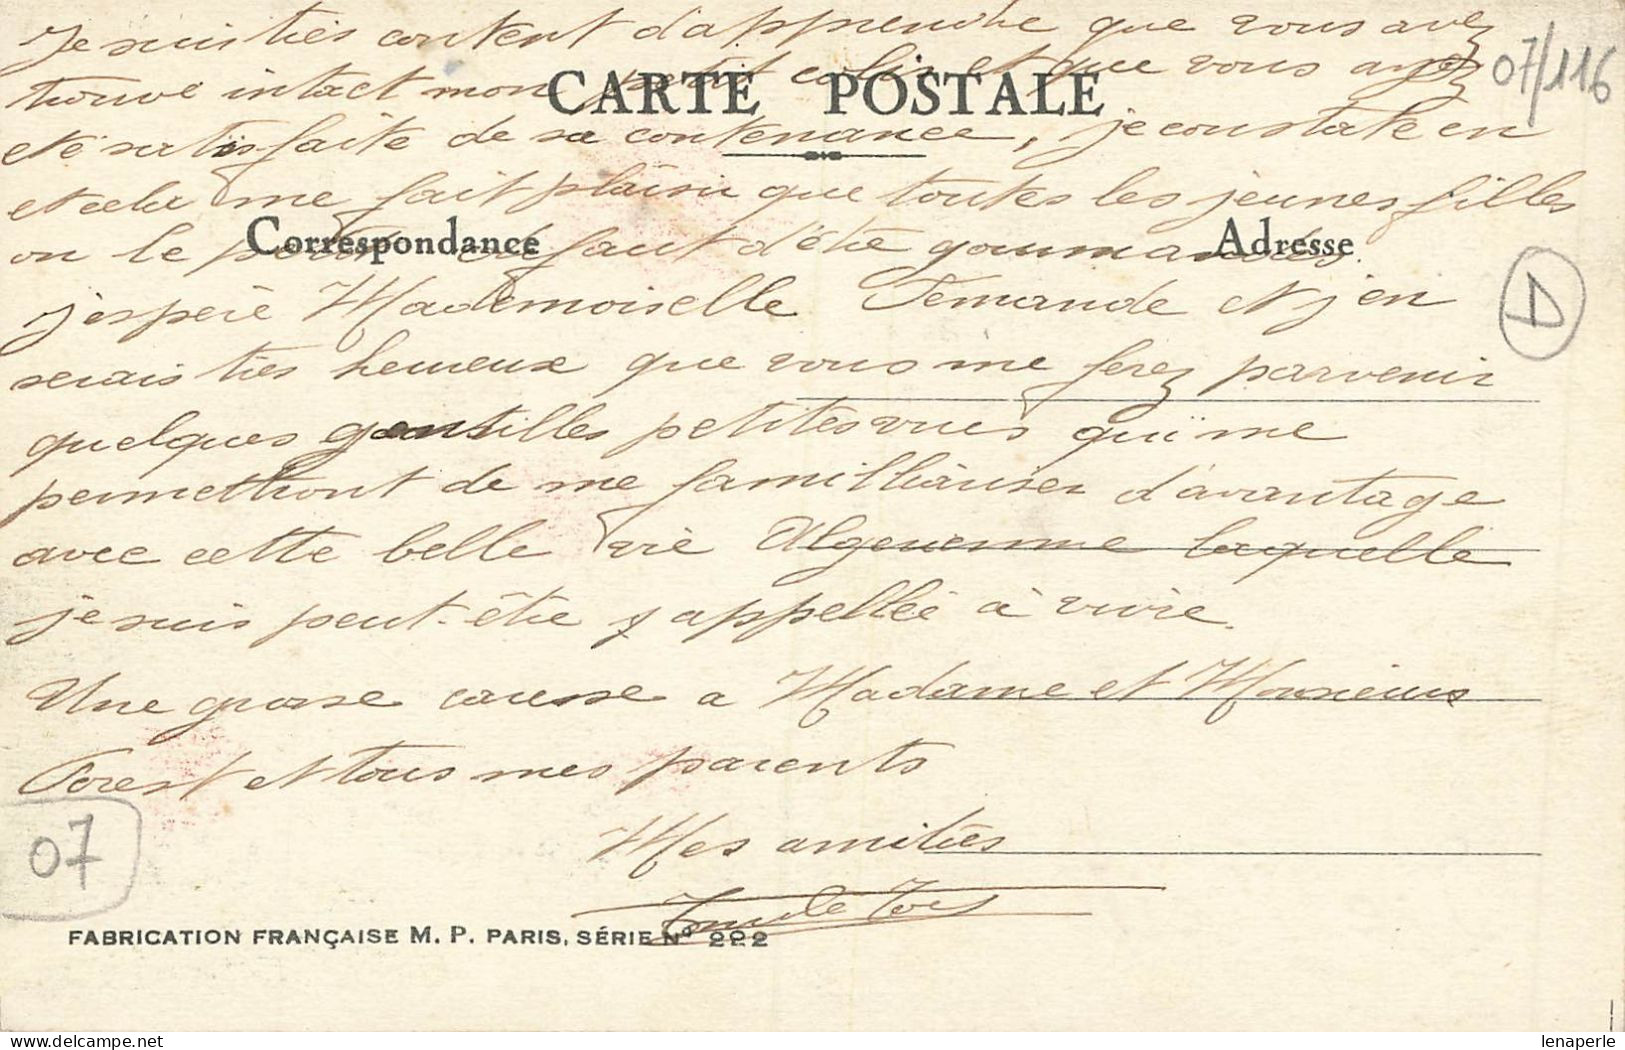 Je suis très content d'apprendre que vous avez
07/116
trouvé intact mon petit colis et que vous ayez
CARTE POSTALE
été satisfaite de sa contenance, je constate en
et cela me fait plaisir que toutes les jeunes filles
Correspondance
Adresse
on le defaut d'être gourmandes.
D
j'espère Mademoiselle Fernande et j'en
serais très heureux que vous me ferez parvenir
quelques gentilles petites vues qui me
permettront de me familliariser d'avantage
avec cette belle vie Algerienne laquelle
je suis peut-être appellée à vivre.
Une grosse caresse a Madame et Monsieur
Forest et tous mes parents
07
Mes amitiés
FABRICATION FRANÇAISE M. P. PARIS, SÉRIE Nº 222
lenaperle